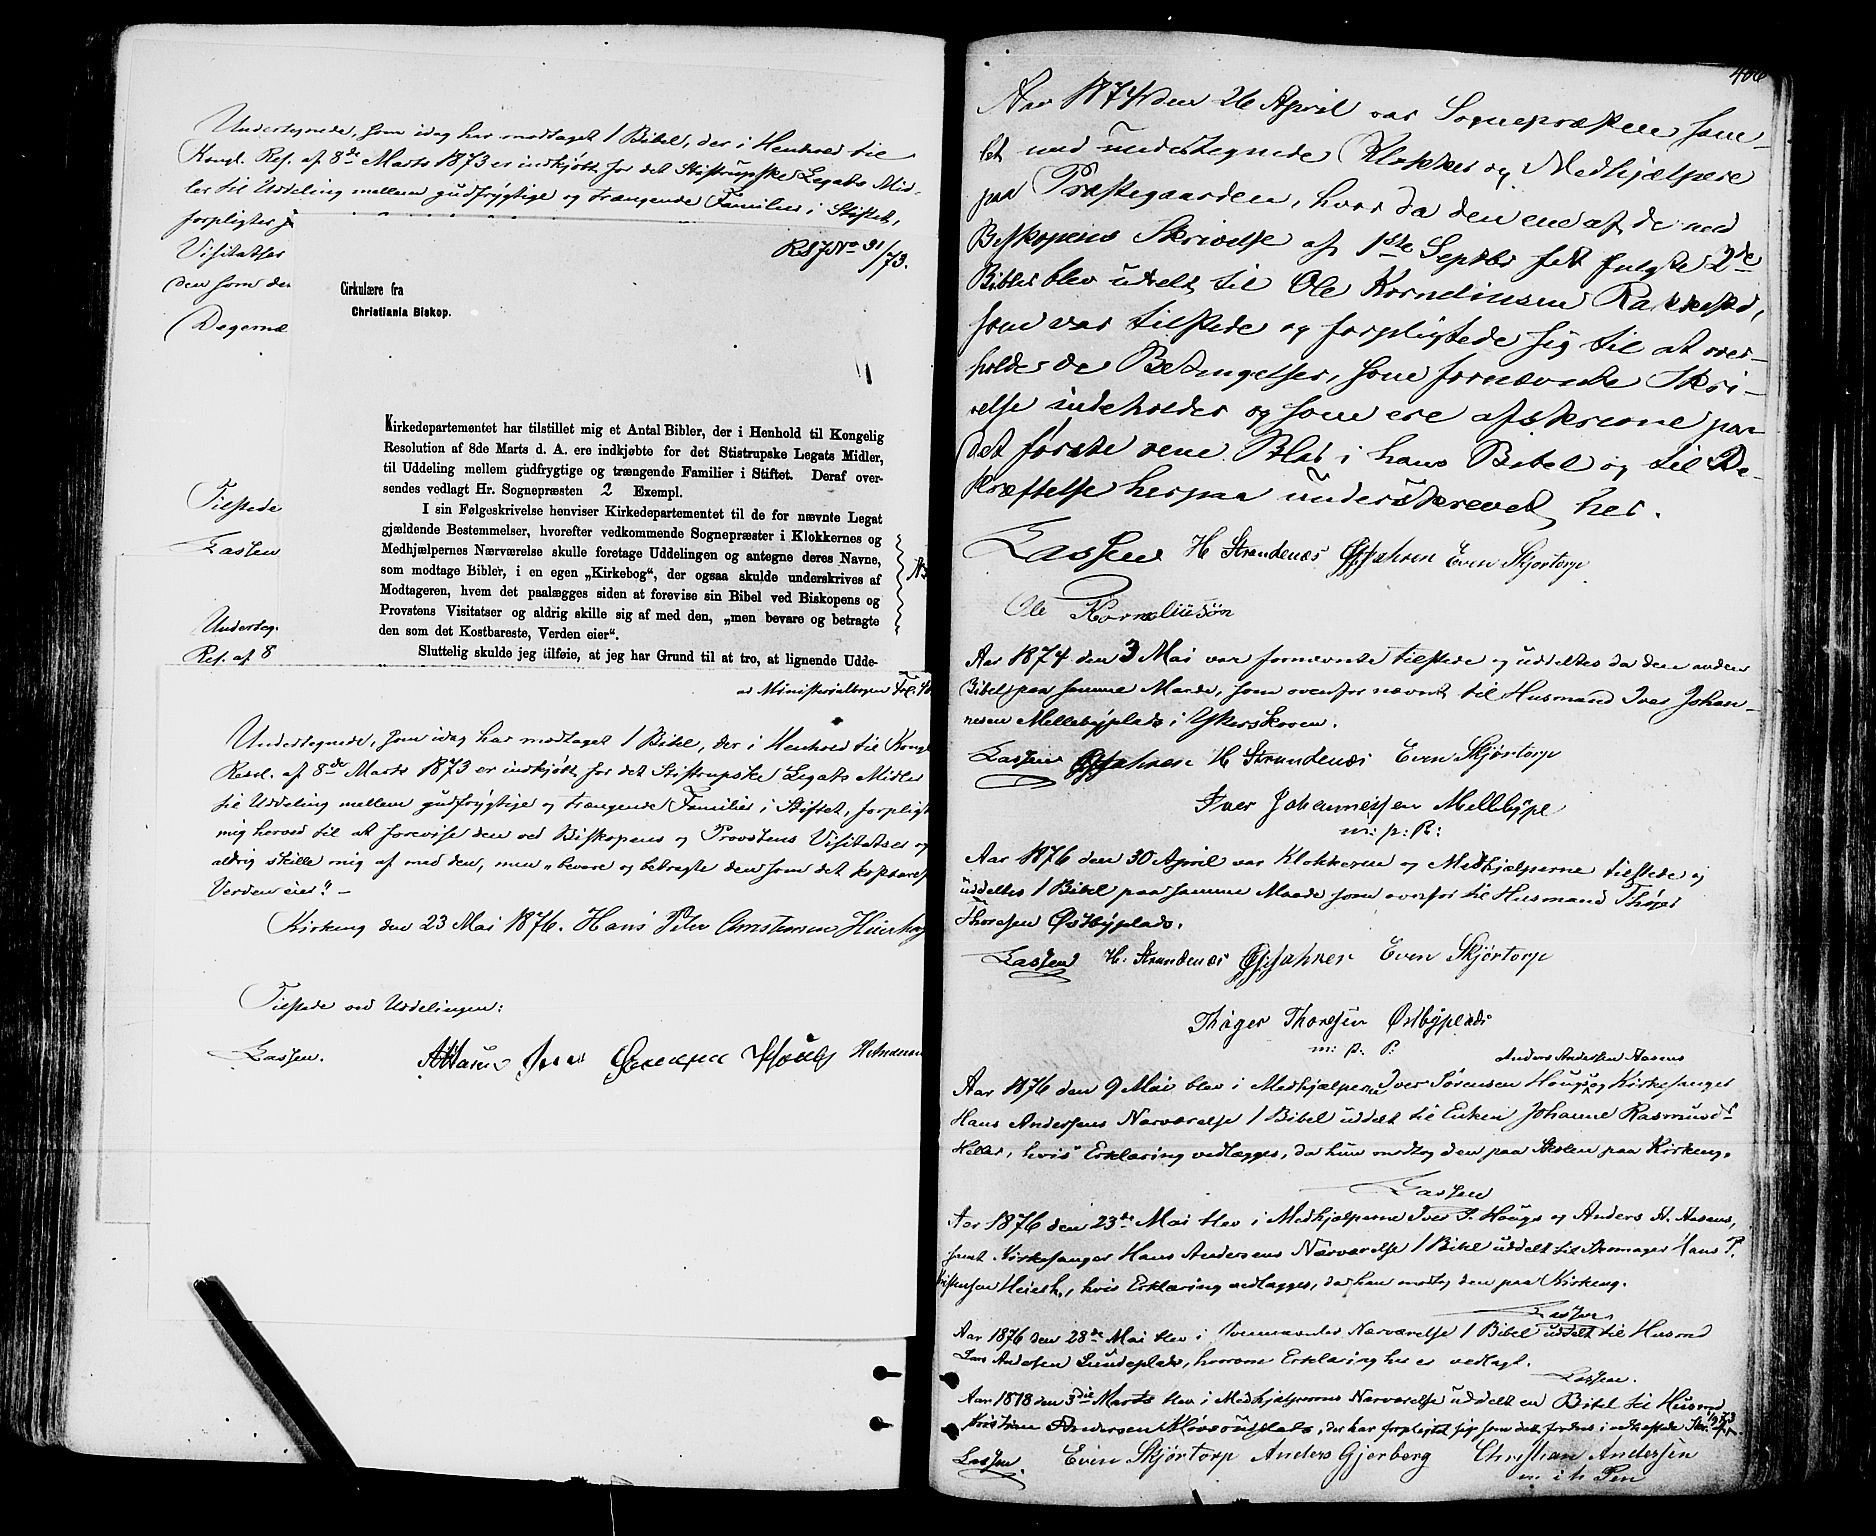 Undertegnede, som idag har modtaget 1 Bibel, der i Henhold til
Kongl. Res. af 8de Marts 1873 er indkjøbt for det Stistrupske Legats Mid-
ler til Uddeling mellem gudfrygtige og trængende Familier i Stiftet,
forpligter
Visitatser
den som det
Degernæ
RS J No 31/73.
Cirkulære fra
Christiania Biskop.
Kirkedepartementet har tilstillet mig et Antal Bibler, der i Henhold til Kongelig
Resolution af 8de Marts d. A. ere indkjøbte for det Stistrupske Legats Midler,
til Uddeling mellem gudfrygtige og trængende Familier i Stiftet. Deraf over-
sendes vedlagt Hr. Sognepræsten 2 Exempl.
I sin Følgeskrivelse henviser Kirkedepartementet til de for nævnte Legat
gjældende Bestemmelser, hvorefter vedkommende Sognepræster i Klokkernes og
Medhjælpernes Nærværelse skulle foretage Uddelingen og antegne deres Navne,
som modtage Bibler, i en egen „Kirkebog“, der ogsaa skulde underskrives af
Modtageren, hvem det paalægges siden at forevise sin Bibel ved Biskopens og
Provstens Visitatser og aldrig skille sig af med den, „men bevare og betragte
den som det Kostbareste, Verden eier“.
Sluttelig skulde jeg tilføie, at jeg har Grund til at tro, at lignende Udde-
Tilstede
Lassen
Underteg.
Res. af 8
ad Ministerialbogen Fol. 40
Undertegnede, som idag har modtaget 1 Bibel, der i Henhold til Kongl
Resol. af 8de Marts 1873 er indkjøbt for det Stistrupske Legats Midler
til Uddeling mellem gudfrygtige og trængende Familier i Stiftet, forpligt
mig herved til at forevise den ved Biskopens og Provstens Visitatser og
aldrig skille mig af med den, men „bevare og betragte den som det kostbares
Verden eier“. –
Kirkeng den 23 Mai 1876. Hans Peter Christensen
Tilstede ved Uddelingen:
Lassen. H Andersen
406
Aar 1874 den 26 April var Sognepræsten sam-
let med undertegnede Klokker og Medhjælpere
paa Præstegaarden, hvor da den ene af de med
Biskopens Skrivelse af 1ste Septbr 2de
Bibler blev uddelt til Ole Kornelinsen Rakkestad,
som var tilstede og forpligtede sig til at over-
holde de Betingelser, som fornævnte Skri-
velse indeholder og som ere afskrevne paa
det første rene Blad i hans Bibel og til Be-
kræftelse herpaa underskrevet her.
Lassen H Strandenæs Even Skjørtorp
Ole Korneliusøn
Aar 1874 den 3 Mai var fornævnte tilstede og uddeltes da den anden
Bibel paa samme Maade, som ovenfor nævnt til Husmand Iver Johan-
nesen Mellebyplads i Ykerskoven.
Lassen H Strandenæs Even Skjørtorp
Iver Johannessen Mellbypl
m: p: P:
Aar 1876 den 30 April var Klokkeren og Medhjælperne tilstede og
uddeltes 1 Bibel paa samme Maade som ovenfor til Husmand Thøger
Thoresen Østbyplads.
Lassen H. Strandenæs Even Skjørtorp
Thøger Thoresen Østbyplads
m: p. P:
Anders Andersen Aasens
Aar 1876 den 9 Mai blev i Medhjælperne Iver Sørensen Hougs og Kirkesanger
Hans Andersens Nærværelse 1 Bibel uddelt til Enken Johanne Rasmusd
Heller, hvis Erklæring vedlægges, da hun modtog den paa Skolen paa Kirkeng.
Lassen
Aar 1876 den 23de Mai blev i Medhjælperne Iver S. Hougs og Anders A. Aasens,
samt Kirkesanger Hans Andersens Nærværelse 1 Bibel uddelt til Skomager Hans P.
Kristensen, hvis Erklæring vedlægges, da han modtog den paa Kirkeng.
Lassen
Aar 1876 den 28de Mai blev i Nærværelse 1 Bibel uddelt til Husmd
Lars Andersen Lundeplads, hvorom Erklæring her er vedlagt.
Lassen.
Aar 1878 den 3die Marts blev i Medhjælpernes Nærværelse uddelt en Bibel til Husmd
Kristian Andersen, der har forpligtet sig som det fordres i vedhæftede
Lassen. Even Skjørtorp Anders Gjerberg Christian Andersen
m i h Pen